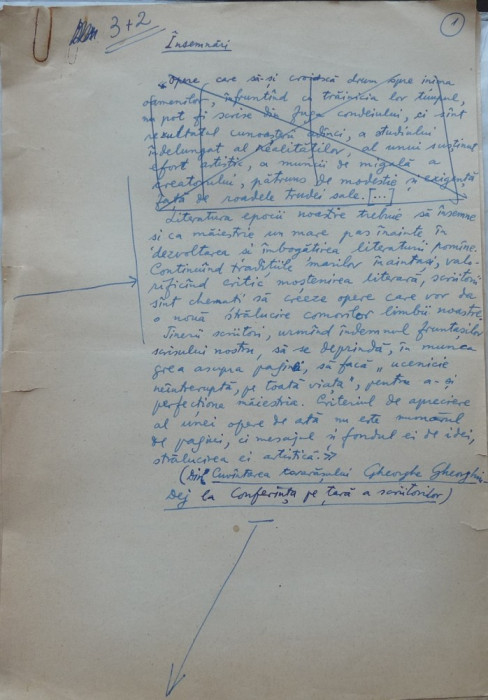 3+2
1
Însemnări
„Opere, care să-și croiască drum spre inima
oamenilor, înfruntând cu trăinicia lor timpul,
nu pot fi scrise din fuga condeiului, ci sînt
rezultatul cunoașterii adînci, a studiului
îndelungat al realităților, al unui susținut
efort artistic, a muncii de migală a
creatorului, pătruns de modestie și exigență
față de roadele trudei sale. [...]
Literatura epocii noastre trebuie să însemne
și ca măiestrie un mare pas înainte în
dezvoltarea și îmbogățirea literaturii romîne.
Continuînd tradițiile marilor înaintași, valo-
rificînd critic moștenirea literară, scriitorii
sînt chemați să creeze opere care vor da
o nouă strălucire comorilor limbii noastre.
Tinerii scriitori, urmînd îndemnul fruntașilor
scrisului nostru, să se deprindă, în munca
grea asupra paginei, să facă „ucenicie
neîntreruptă, pe toată viața", pentru a-și
perfecționa măiestria. Criteriul de apreciere
al unei opere de artă nu este numărul
de pagini, ci mesajul și fondul ei de idei,
strălucirea ei artistică."
(Din Cuvîntarea tovarășului Gheorghe Gheorghiu-
Dej la Conferința pe țară a scriitorilor)